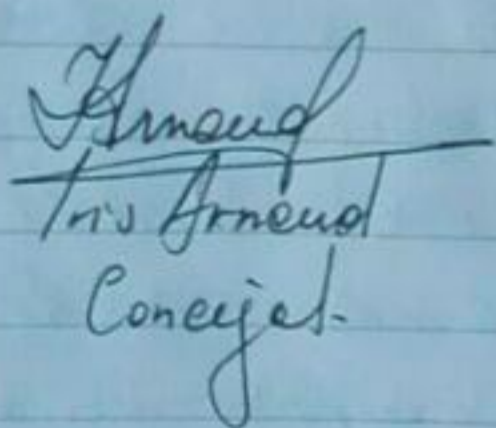 IArnaud
Iris Arnaud
Concejal.